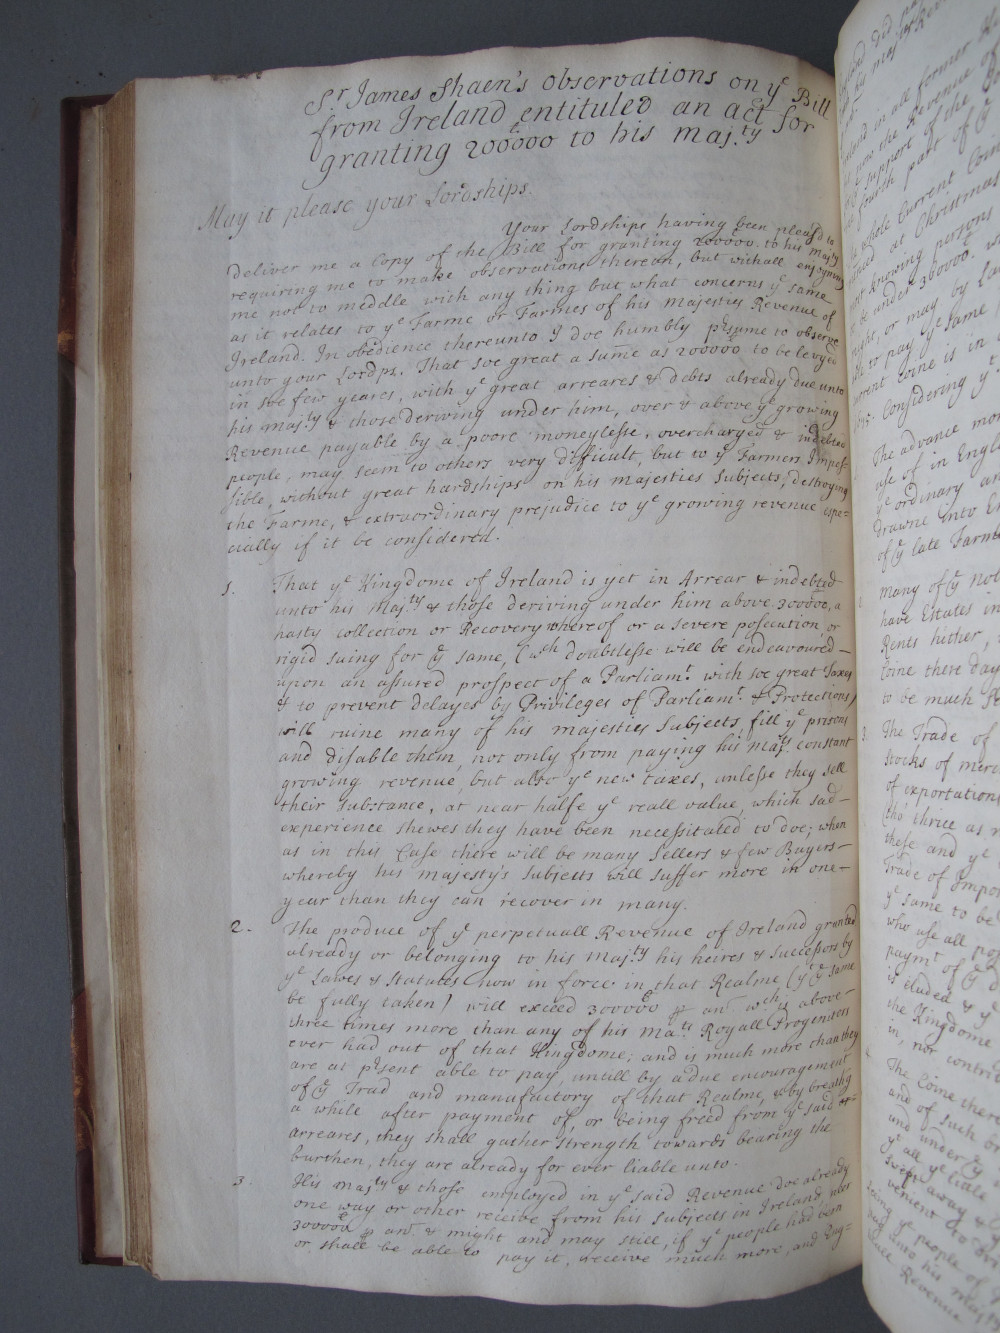 Sr. James Shaen's observations on ye Bill
from Ireland entituled an act for
granting 200000 to his maj.ty
May it please your Lordships.
Your Lordships having been pleas'd to
deliver me a Copy of the Bill for granting 200000. to his Majty
requiring me to make observations thereon, but withall enjoyning
me not to meddle with any thing but what concerns ye same
as it relates to ye Farme or Farmes of his Majesties Revenue of
Ireland. In obedience thereunto I doe humbly psume to observe
unto your Lordps. That soe great a sume as 200000 to be levyed
in soe few yeares, with ye great arreares & debts already due unto
his maj.ty & those deriving under him, over & above ye growing
Revenue payable by a poore moneylesse, overcharged & indebted
people, may seem to others very difficult, but to ye Farmers Impos-
sible, without great hardships on his majesties Subjects, destroying
the Farme, & extraordinary prejudice to ye growing revenue espe=
cially if it be considered.
1. That ye Kingdome of Ireland is yet in Arrear & indebted
unto his Maj.ty & those deriving under him above 300000, a
hasty collection or Recovery whereof or a severe psecution, or
rigid suing for ye same, (wch doubtlesse will be endeavoured -
upon an assured prospect of a Parliamt. with soe great Taxes
& to prevent delayes by Priviledges of Parliamt. & Protections)
will ruine many of his majesties Subjects, fill ye prisons
and disable them, not only from paying his majtys constant
growing revenue, but also ye new taxes, unlesse they sell
their substance, at near halfe ye reall value, which sad -
experience shewes they have been necessitated to doe; when
as in this Case there will be many Sellers & few Buyers -
whereby his majesty's Subjects will suffer more in one -
year than they can recover in many.
2. The produce of ye perpetuall Revenue of Ireland granted
already or belonging to his Maj.ty his heires & Successors by
ye Lawes & Statutes now in force in that Realme (yt ye same
be fully taken) will exceed 300000 p an. wch is above -
three times more than any of his Mats Royall Progenitors
ever had out of that Kingdome; and is much more than they
are at psent able to pay, untill by a due encouragement
of ye Trad and manufactory of that Realme, & by breathg
a while after payment of, or being freed from ye said
arreares, they shall gather strength towards bearing the
burthen, they are already for ever liable unto.
3. His Majty & those employed in ye said Revenue doe already
one way or other receive from his Subjects in Ireland, above
300000 p an. & might and may still, if ye people had been
or shall be able to pay it, receive much more, and Eng=
in all former
unto the Revenue of
support of the
fourth part of ye
whole Current Coine
at Christmas
knowing persons
be under 360000.
right, or may by La
to pay ye same
coine is in
Considering ye
The advance mon
use of in Engl
ye ordinary an
Drawne into En
of ye late Farm
many of ye Nob
have Estates in
Rents hither,
Coine these day
to be much
3. The Trade of
Stocks of merc
of exportation
(tho' thrice as
these and ye
Trade of Impor
ye same to be
who use all pos
paymt of ye D
is eluded & ye
the Kingdome
in, nor contrib
The Coine there
and of such or
and under ye
yt all ye little
swept away &
venient &
ye people of
unto his Majty
Revenue